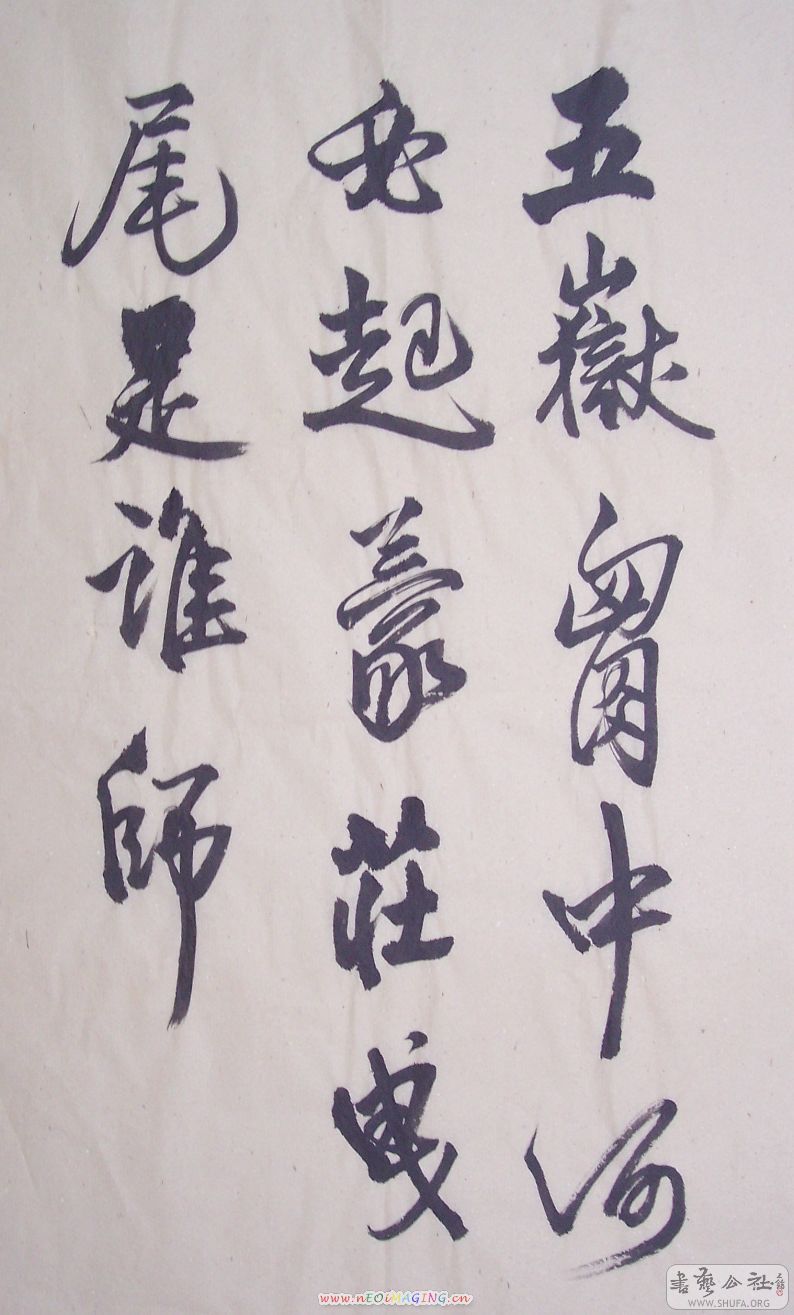 五嶽胷中何
必起蒙莊曳
尾是誰師
www.nEOiMAGiNG.cn
書藝公社
WWW.SHUFA.ORG